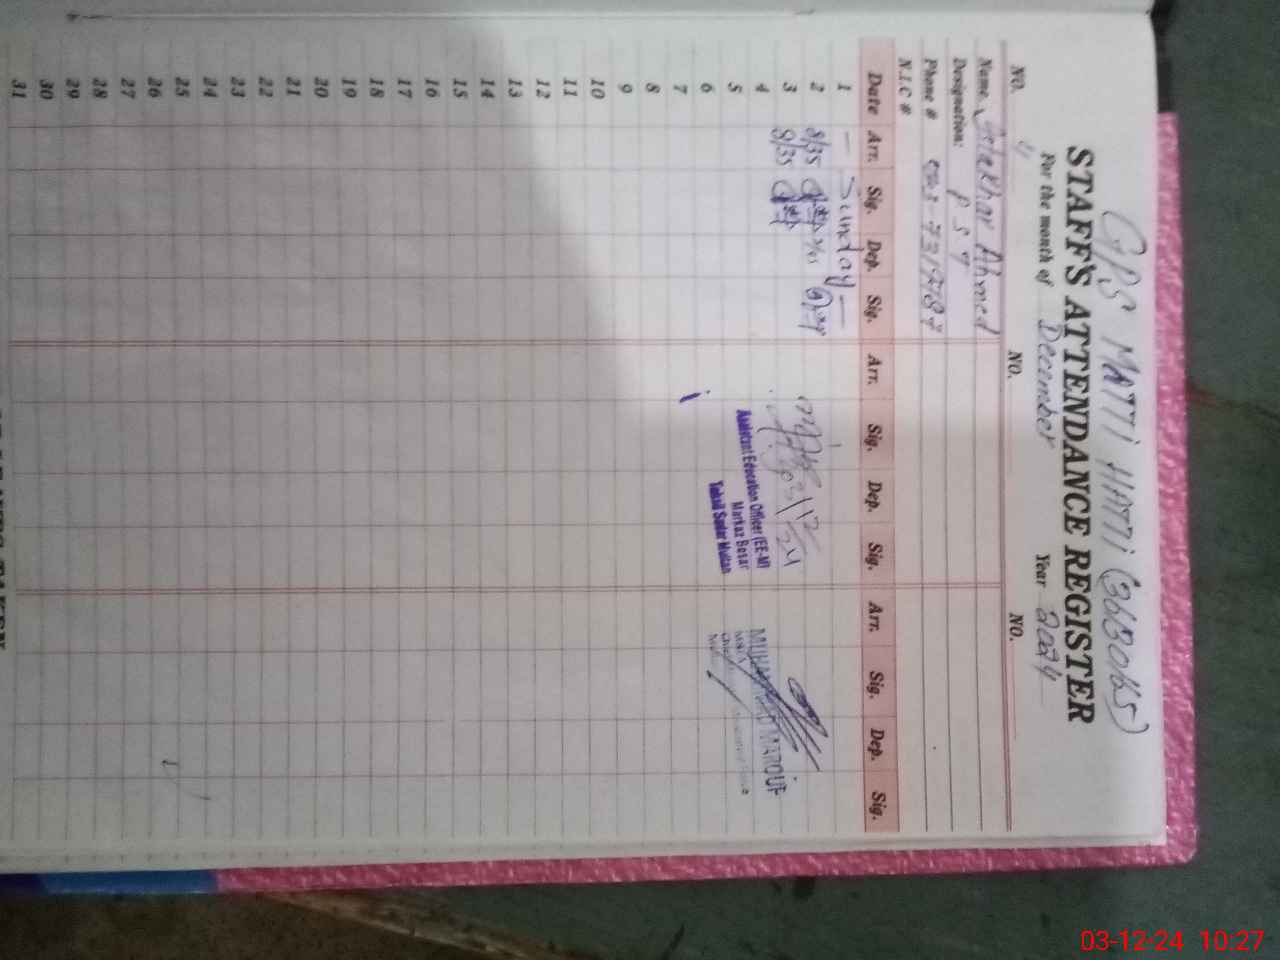 GPS MATTI HATTI (36130165)
STAFF'S ATTENDANCE REGISTER
For the month of December Year 2024
NO. 4 NO. NO.
Name. Iftakhar Ahmed
Designation: PST
Phone #
N.I.C #
Date Arr. Sig. Dep. Sig. Arr. Sig. Dep. Sig. Arr. Sig. Dep. Sig.
1 — Sunday —
2 8/35
3 8/35
03/12/24
4
Assistant Education Officer (EE-M)
Markaz Bosar
Tehsil Saddar Multan
MUHAMMAD MAROUF
5
6
7
8
9
10
11
12
13
14
15
16
17
18
19
20
21
22
23
24
25
26
27
28
29
30
31
03-12-24 10:27